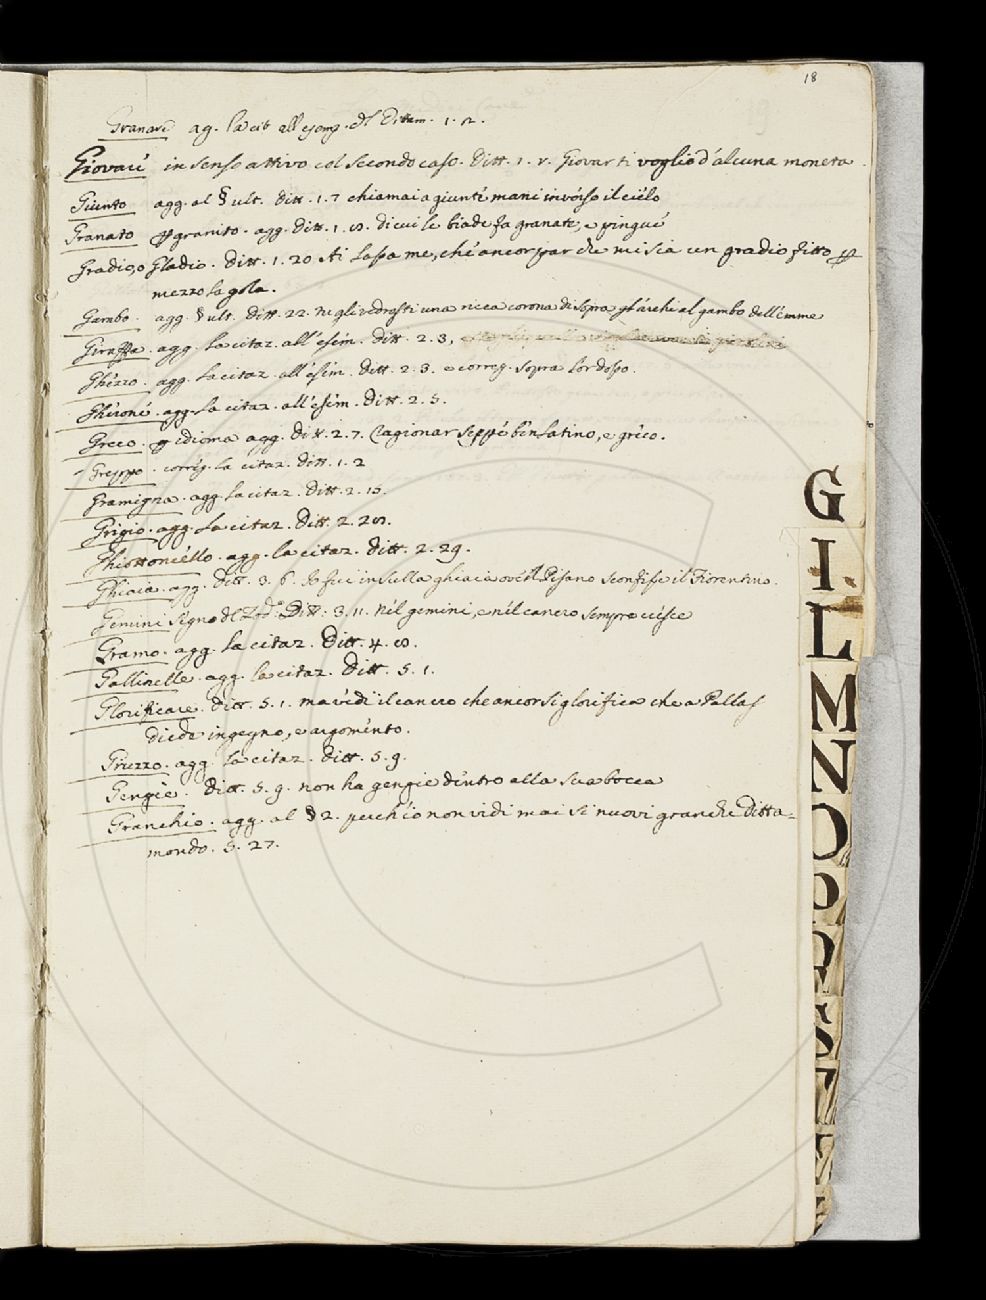 18
Granare ag. la cit all esemp. dl Dittam. 1. 2.
Giovare in senso attivo col secondo caso. Ditt. 1. v. Giovarti voglio d'alcuna moneta.
Giunto agg. al § ult. Ditt. 1. 7 chiamai a giunte mani inverso il cielo
Granato p granito. agg. Ditt. 1. 8. di cui le biade fa granate, e pingue
Gradio, o Gladio. Ditt. 1. 20 Ai lassa me, che ancor par che mi sia un gradio fitto p
mezzo la gola.
Gambo. agg. § ult. Ditt. 22. Negli vedresti una ricca corona di sopra gl'archi al gambo dell'emme
Giraffa. agg. la citaz. all'esem. Ditt. 2. 3,
Ghezzo. agg. la citaz. all'esem. Ditt. 2. 3. e correg. sopra lor dosso.
Gherone. agg. la citaz. all'esem. Ditt. 2. 5.
Greco. p idioma agg. Ditt. 2. 7. Ragionar seppe ben latino, e greco.
Greppo. correg. la citaz. Ditt. 1. 2
Gramigna. agg. la citaz. Ditt. 2. 15.
Grigio. agg. la citaz. Ditt. 2. 28.
Ghiottoncello. agg. la citaz. Ditt. 2. 29.
Ghiaia. agg. Ditt. 3. 6. Io fui in sulla ghiaia ove'l Pisano sconfisse il Fiorentino.
Gemini Segno dl Zod.º Ditt. 3. 11. Nel gemini, e nel cancro sempre cresce
Gramo. agg. la citaz. Ditt. 4. 8.
Gallinelle. agg. la citaz. Ditt. 5. 1.
Glorificare. Ditt. 5. 1. ma vedi il cancro che ancor si glorifica che a Pallas
diede ingegno, e argomento.
Gruzzo. agg. la citaz. Ditt. 5. 9.
Gengie. Ditt. 5. 9. non ha gengie dentro alla sua bocca
Granchio. agg. al § 2. perch'io non vidi mai si nuovi granchi Ditta=
mondo. 5. 27.
G
I
L
M
N
O
P
Q
S
T